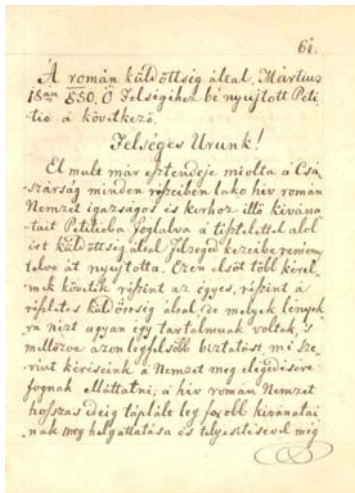 61.
A román küldöttség által, Mártius
18án 850. Ő Felségihez bé nyujtott Peti-
tio a következő.
Felséges Urunk!
El mult már esztendeje miolta a Csá-
szárság minden részeiben lakó hív román
Nemzet igazságos és korhoz illő kivána-
tait Petitioba foglalva a tisztelettel alol
irt küldöttség által Felséged kezeibe remény
telve át nyujtotta. Ezen elsőt több kérel-
mek követték részint az egyes, részint a
részletes küldöttség által de melyek lények
re nézt ugyan egy tartalmuak voltak, 's
mellőzve azon legfelsőbb biztatást, mi sze-
rint kéréseink a Nemzet meg elégedésére
fognak elláttatni, a hív román Nemzet
hosszas ideig táplált leg forobb kivánatai
nak meg halgattatása és telyesitésével még